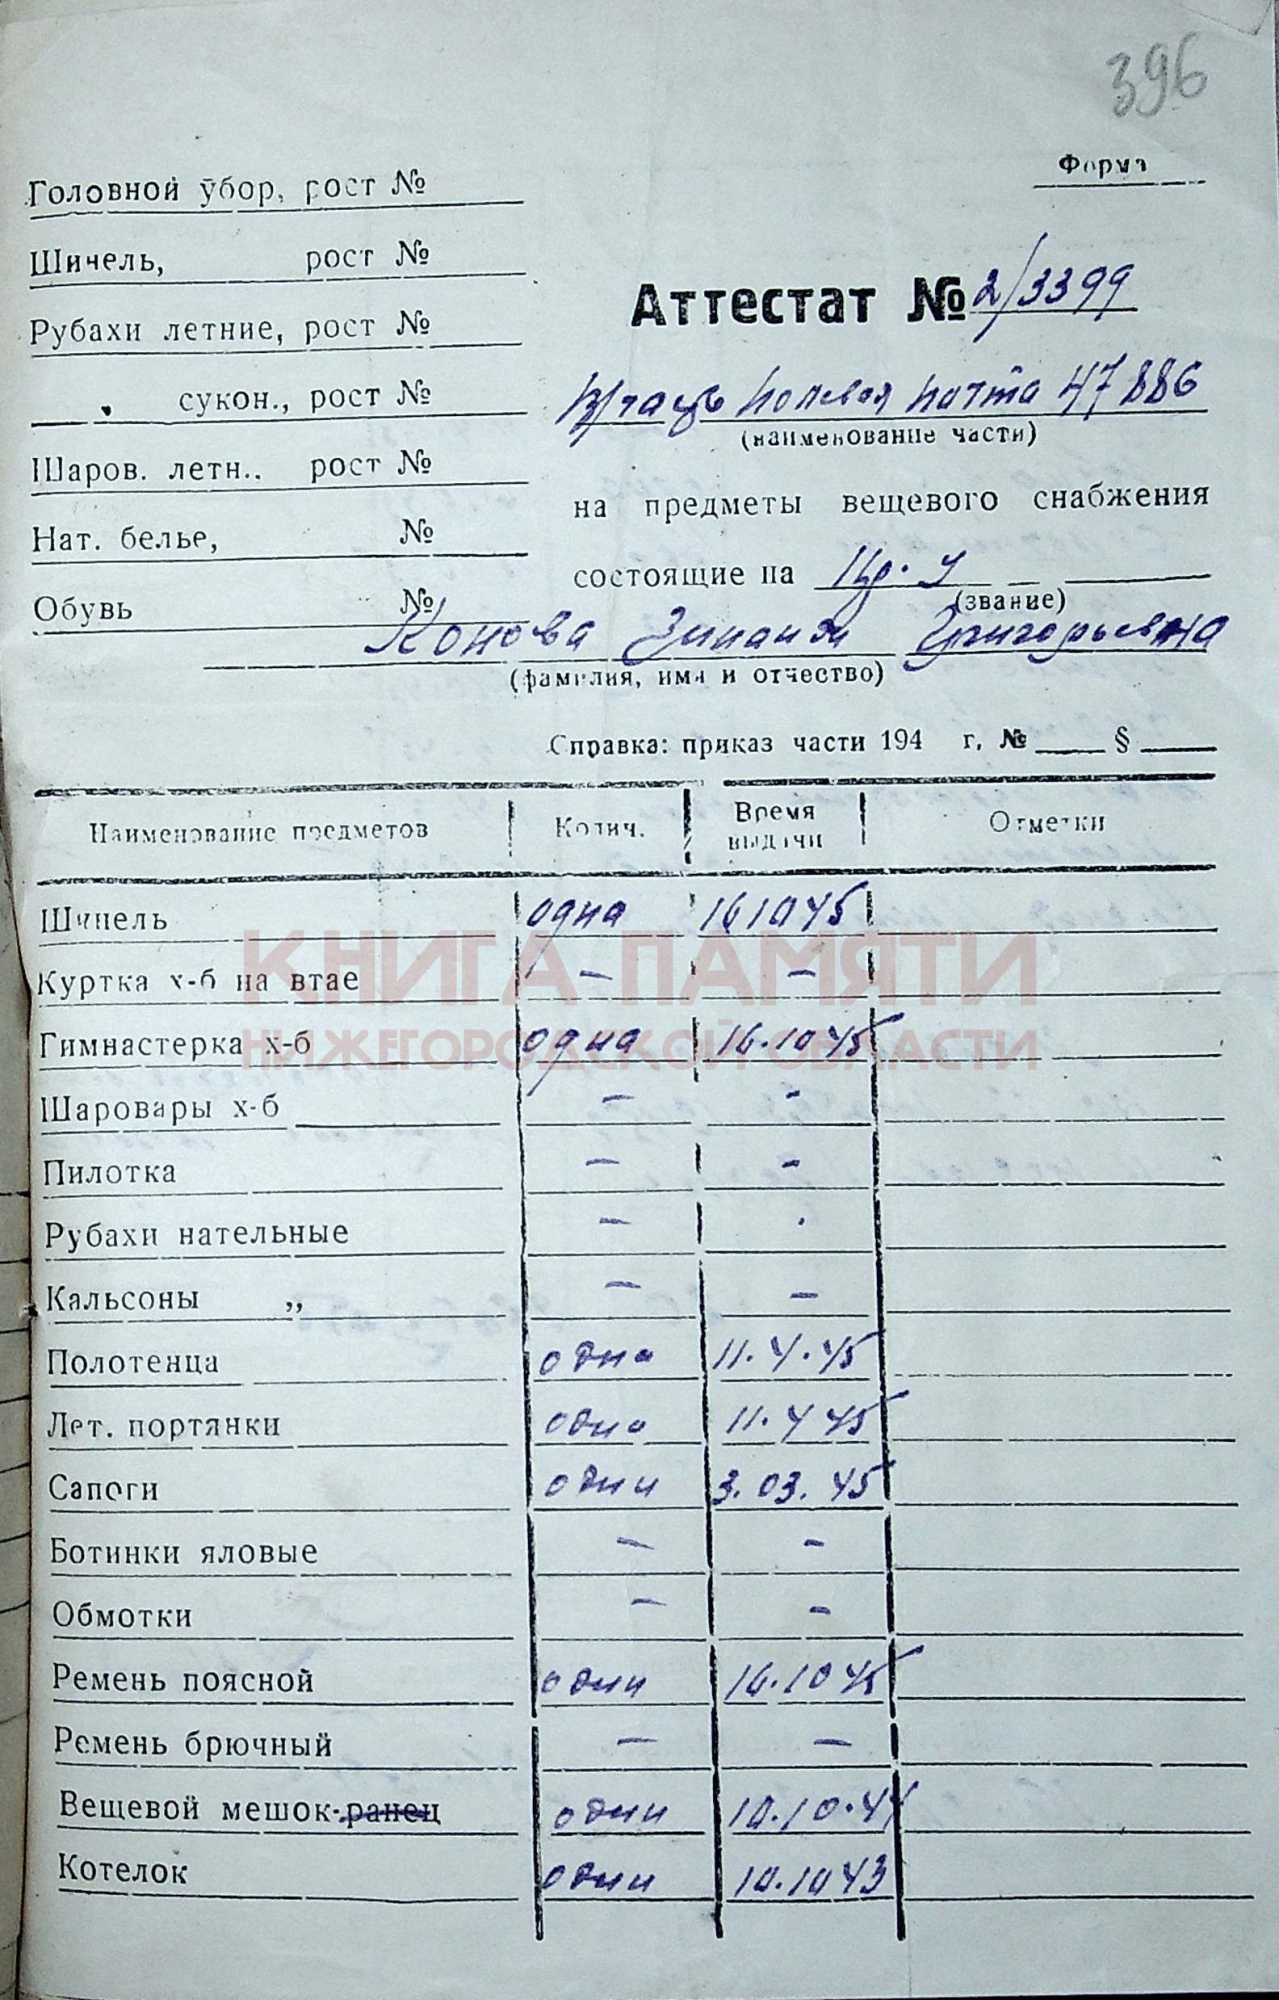 396
Форма
Головной убор, рост №
Шинель, рост №
Рубахи летние, рост №
сукон., рост №
Шаров. летн., рост №
Нат. белье, №
Обувь №
Аттестат № 2/3399
Полевая почта 47886
(наименование части)
на предметы вещевого снабжения
состоящие на
(звание)
Конова Зинаида Григорьевна
(фамилия, имя и отчество)
Справка: приказ части 194 г. № §
Наименование предметов Колич. Время выдачи Отметки
Шинель одна 16 10 45
Куртка х-б на втае — —
Гимнастерка х-б одна 16.10 45
Шаровары х-б — -
Пилотка — -
Рубахи нательные —
Кальсоны „ — —
Полотенца одно 11.4.45
Лет. портянки одна 11.4 45
Сапоги одни 3.03.45
Ботинки яловые — -
Обмотки — -
Ремень поясной один 16.10 45
Ремень брючный — —
Вещевой мешок-ранец один 10.10.44
Котелок один 10.10 43
КНИГА ПАМЯТИ
НИЖЕГОРОДСКОЙ ОБЛАСТИ